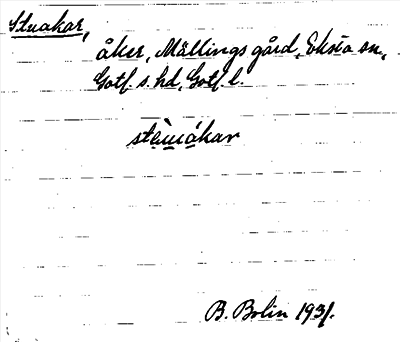 Stuakar,
åker, Mällings gård, Eksta sn,
Gotl. s. hd, Gotl. l.
B. Bolin 1931.